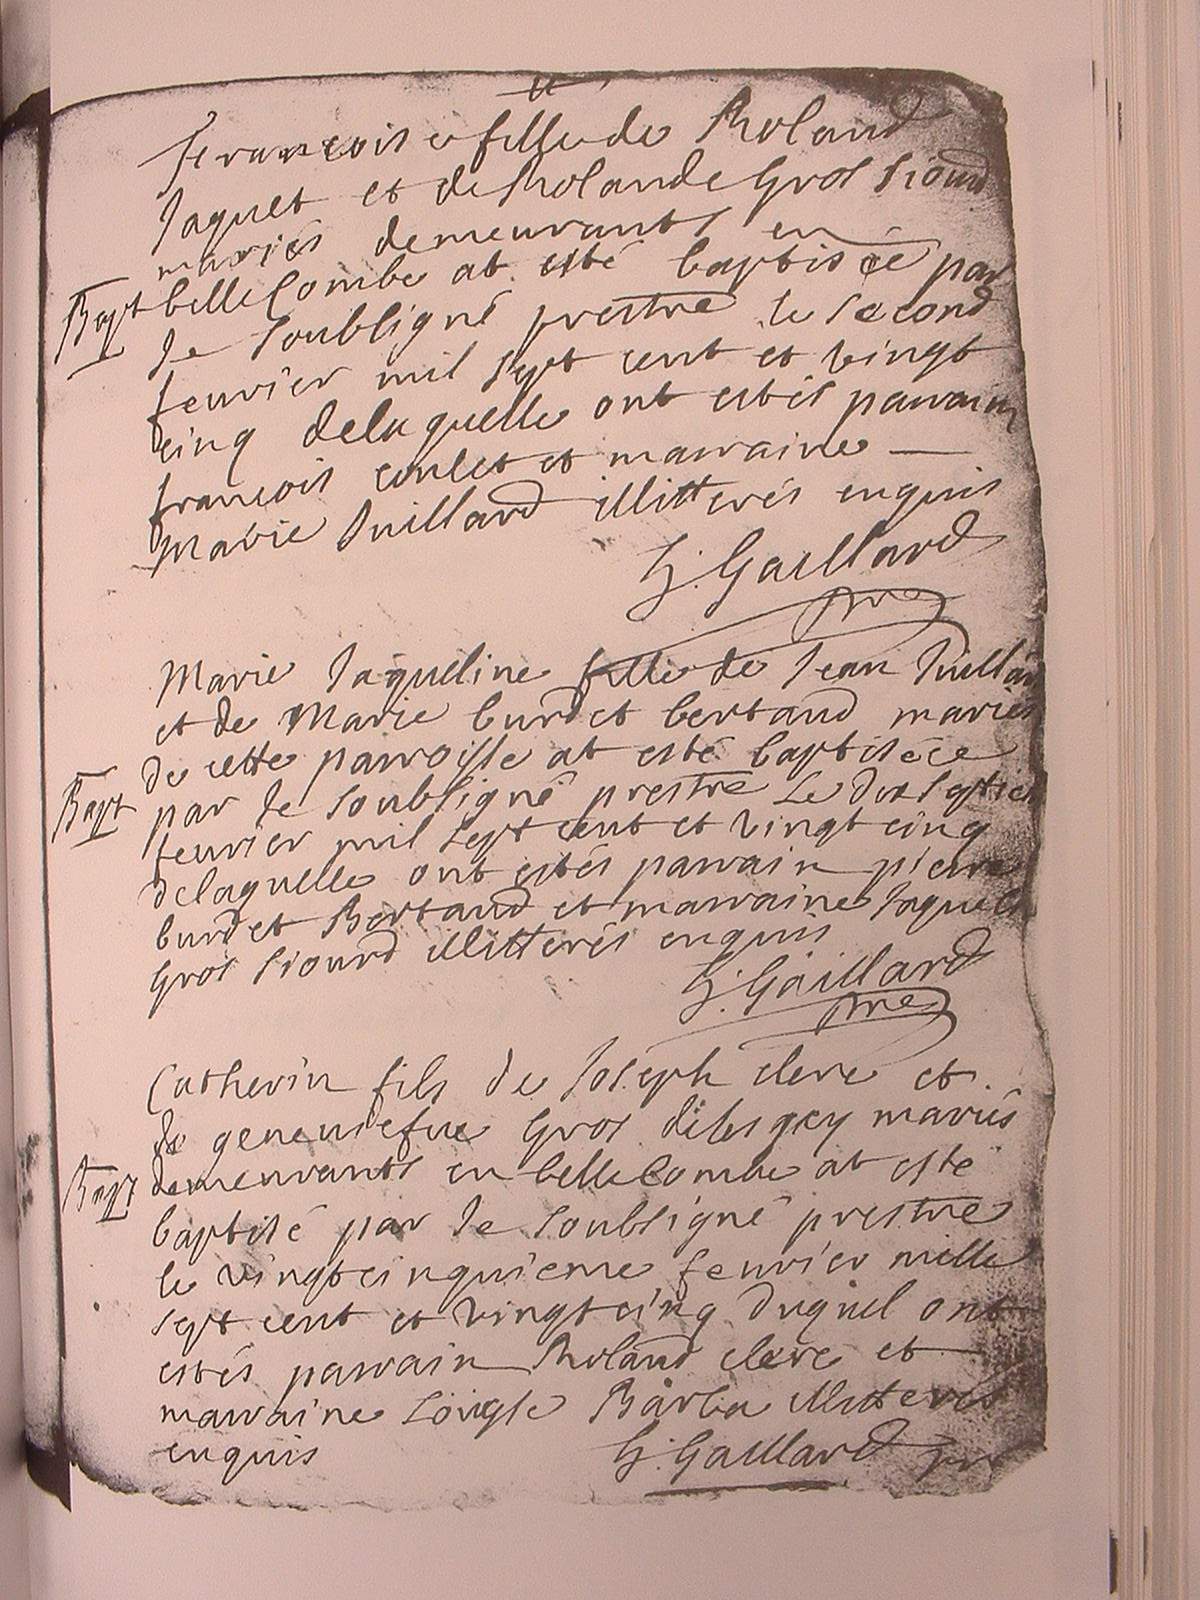 francoise fille de Roland
Jaquet et de Rolande Gros Siourd
mariés demeurants en
Bapt belle Combe at esté baptisée par
Je Soubsigné prestre le second
feurier mil sept cent et vingt
cinq delaquelle ont estés parrain
francois et marraine
Marie Juillard illitterés enquis
G. Gaillard
pre
Marie Jaqueline fille de Jean Juillar
et de Marie burdet bertaud mariés
de cette parroisse at esté baptiséee
Bapt par Je Soubsigné prestre Le dix Septie
feurier mil sept cent et vingt cinq
delaquelle ont estés parrain pierre
burdet Bertaud et marraine Jaqueli
Gros Siourd illitterés enquis
G. Gaillard
pre
Catherin fils de Joseph clerc et
de geneuiefue Gros mariés
Bapt demeurants en belleCombe at esté
baptisé par Je Soubsigné prestre
le vingtcinquieme feurier mille
sept cent et vingtcinq duquel ont
estés parrain Roland clerc et
marraine Barba illitterés
enquis G. Gaillard pre